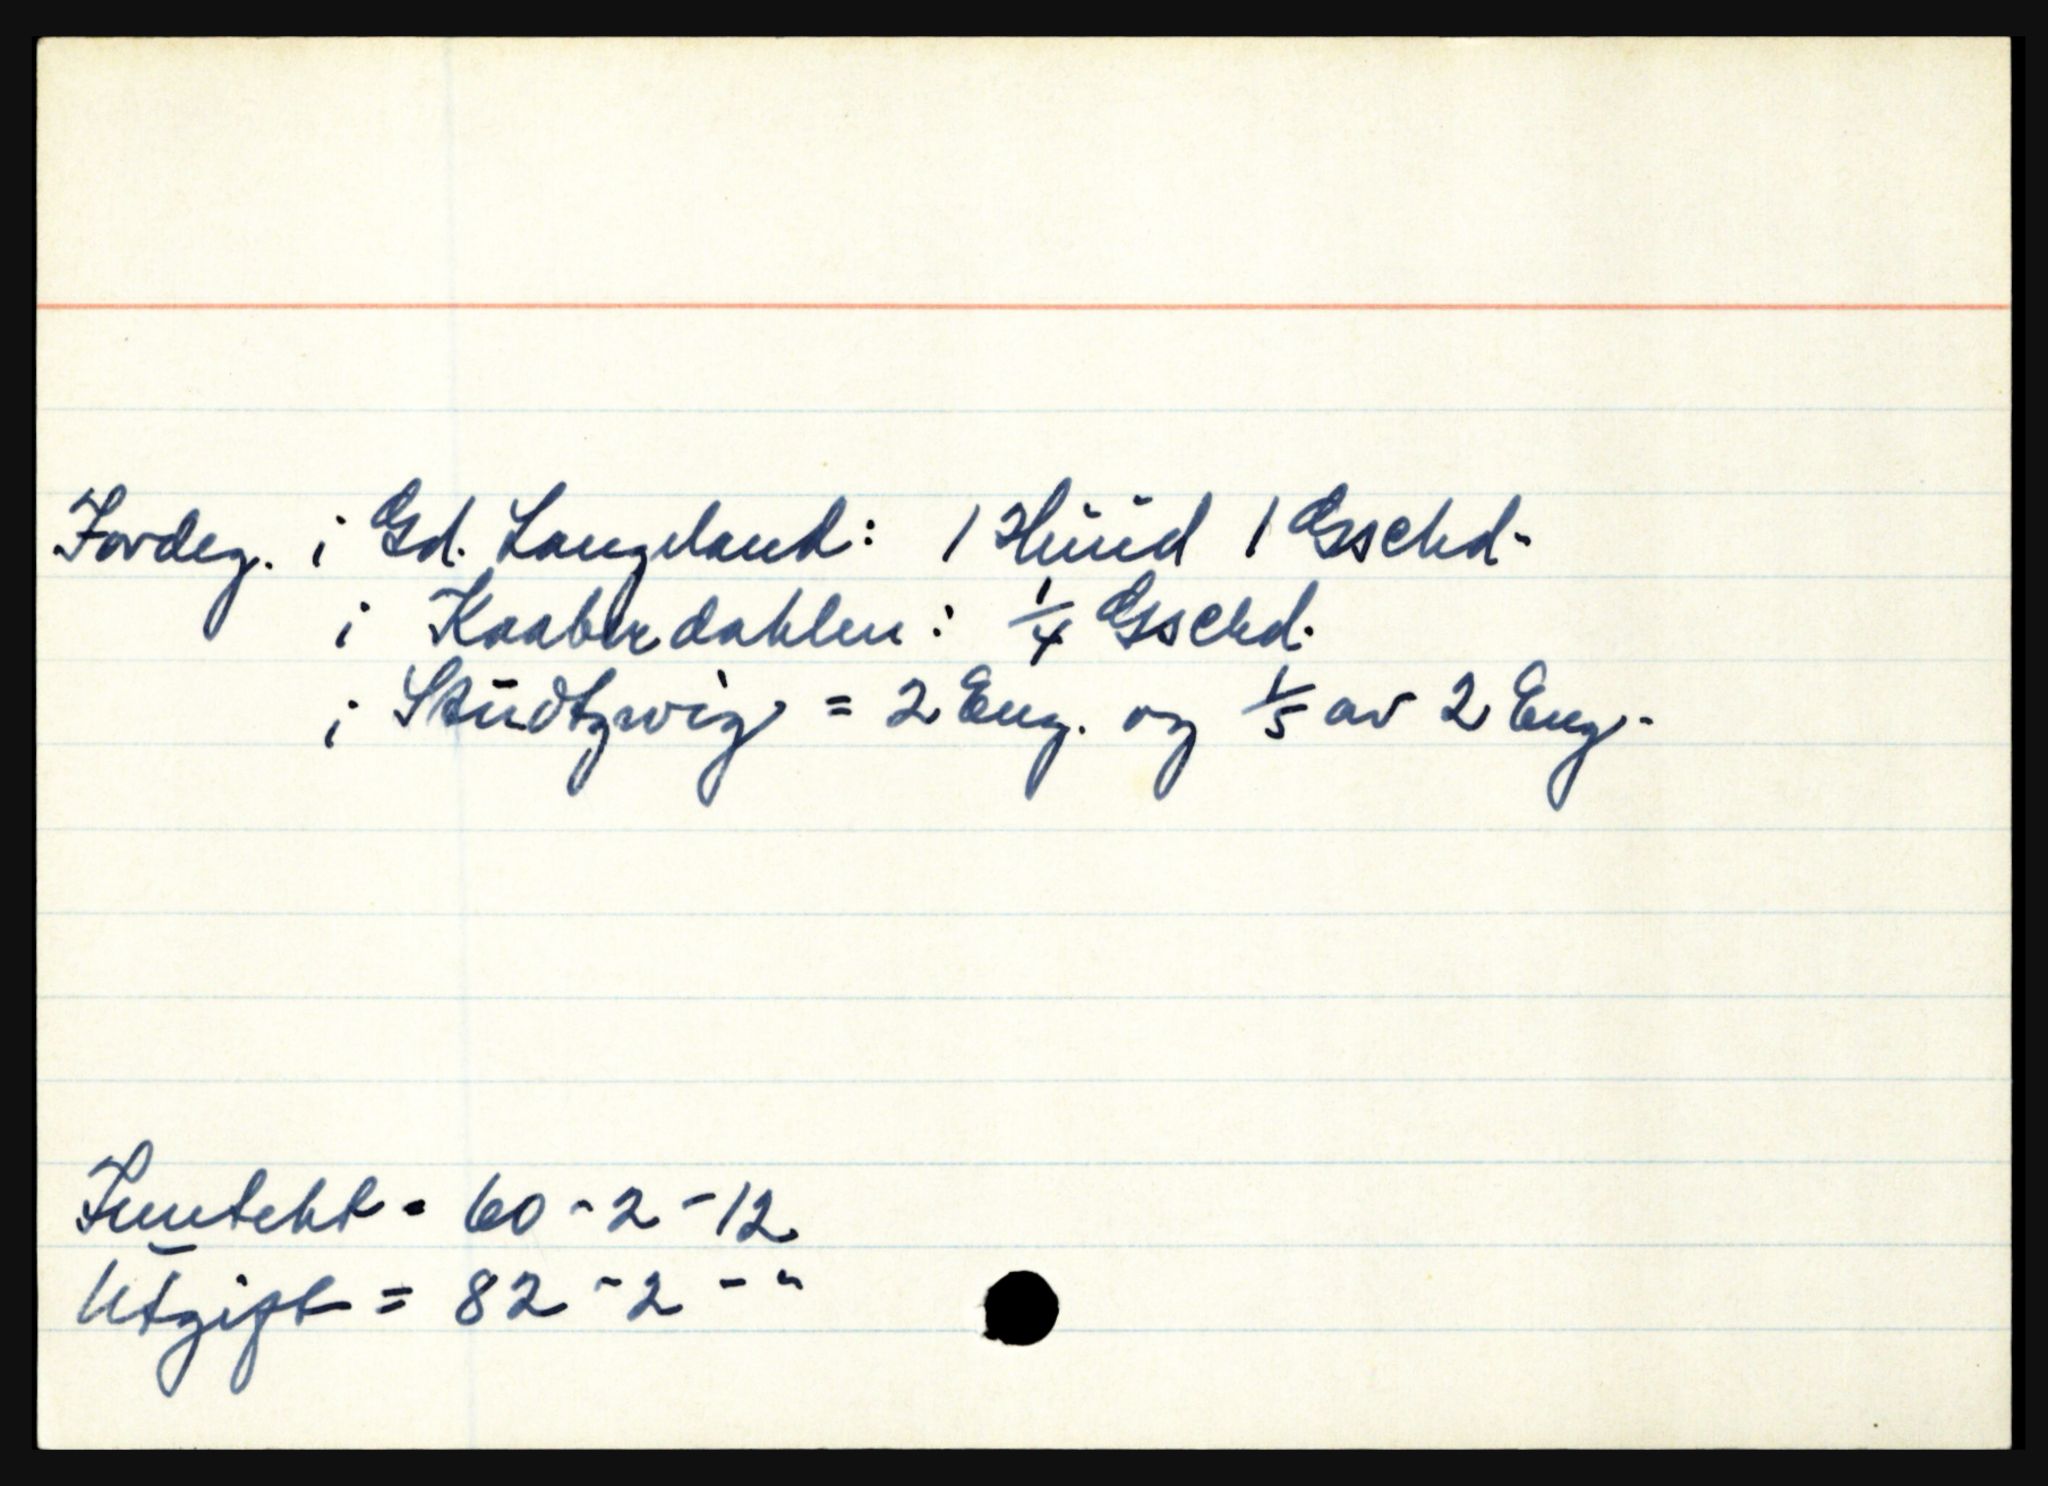 Jordeg. i Gd. Langeland: 1 Huud 1 Gsschd.
i Kaaberdahlen: 1/4 Gsschd.
i Studtzwig = 2 Eng. og 1/5 av 2 Eng.
Inntekt = 60 - 2 - 12
Utgift = 82 - 2 - "